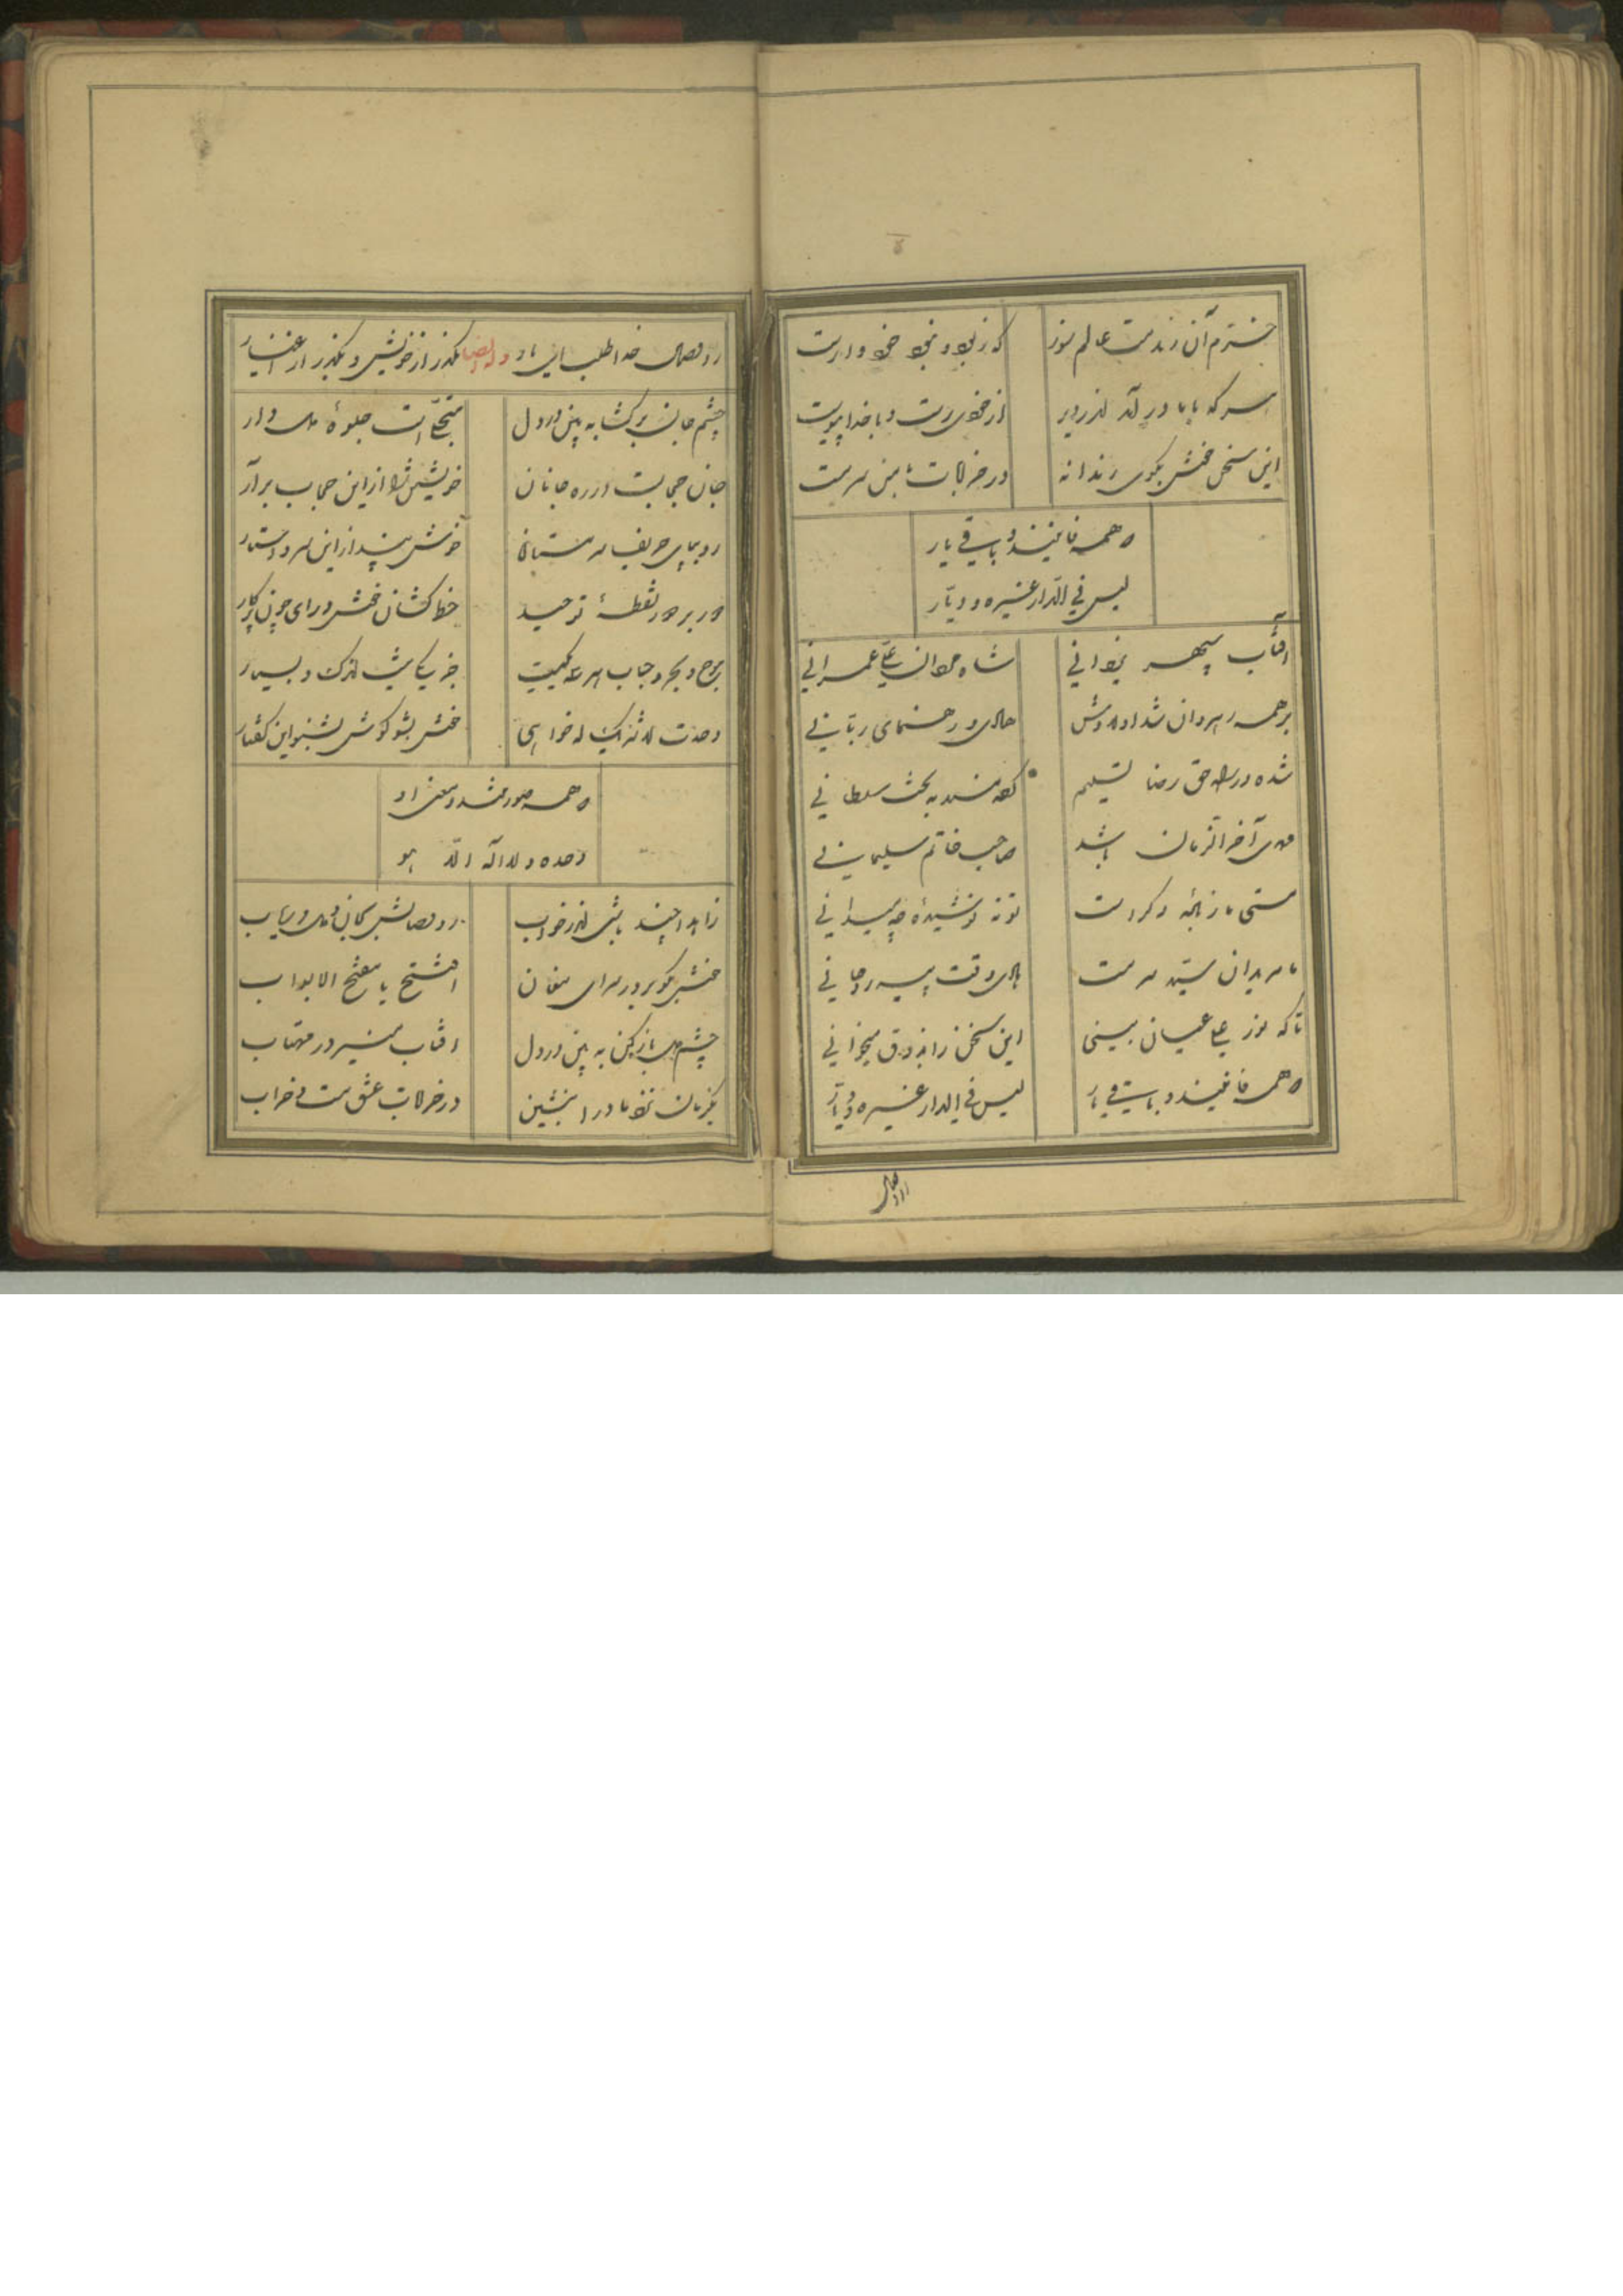 خرم آن رند مست عالم سوز که ز بود و نبود خود وارست
هر که با ما در آمد اندر دیر از خودی رست و با خدا پیوست
این سخن خوش بگوی رندانه در خرابات با من سرمست
که همه فانیند و باقی یار
لیس فی الدار غیره دیار
آفتاب سپهر یزدانی شاه مردان علی عمرانی
بر همه رهروان شد اولادش هادی و رهنمای ربانی
شده در راه حق رضا تسلیم بر تخت سلطانی
مهدی آخر الزمان باشد صاحب خاتم سلیمانی
مستی ما ز باده دگر است تو نه نوشیده چه میدانی
با مریدان سید سرمست هادی وقت پیر روحانی
تا که نور علی عیان بینی این سخن را بذوق میخوانی
که همه فانیند و باقی یار لیس فی الدار غیره دیار
رو وصال
رو وصال خدا طلب ای یار وله ایضا بگذر از خویش و بگذر از اغیار
چشم جان برگشا به بین در دل متجلی است جلوه دلدار
جان حجابست در ره جانان خویشتن را از این حجاب برآر
رو بپای حریف سرمستان خوش بینداز این سر و دستار
دور بر دور نقطه توحید خط کشان خوش درآی چون پرکار
موج و بحر و حباب هر سه یکیست جز یکی نیست اندک و بسیار
وحدت لا شریک له خواهی خوش بشو گوش بشنو این گفتار
که همه صورتند و معنی او
وحده لا اله الا هو
زاهدا چند باشی اندر خواب رو وصالش بجان و دل دریاب
خوش بگو بر در سرای مغان افتتح یا مفتح الابواب
چشم دل باز کن به بین در دل آفتاب منیر در مهتاب
یکزمان نزد ما در آ بنشین در خرابات عشق مست و خراب